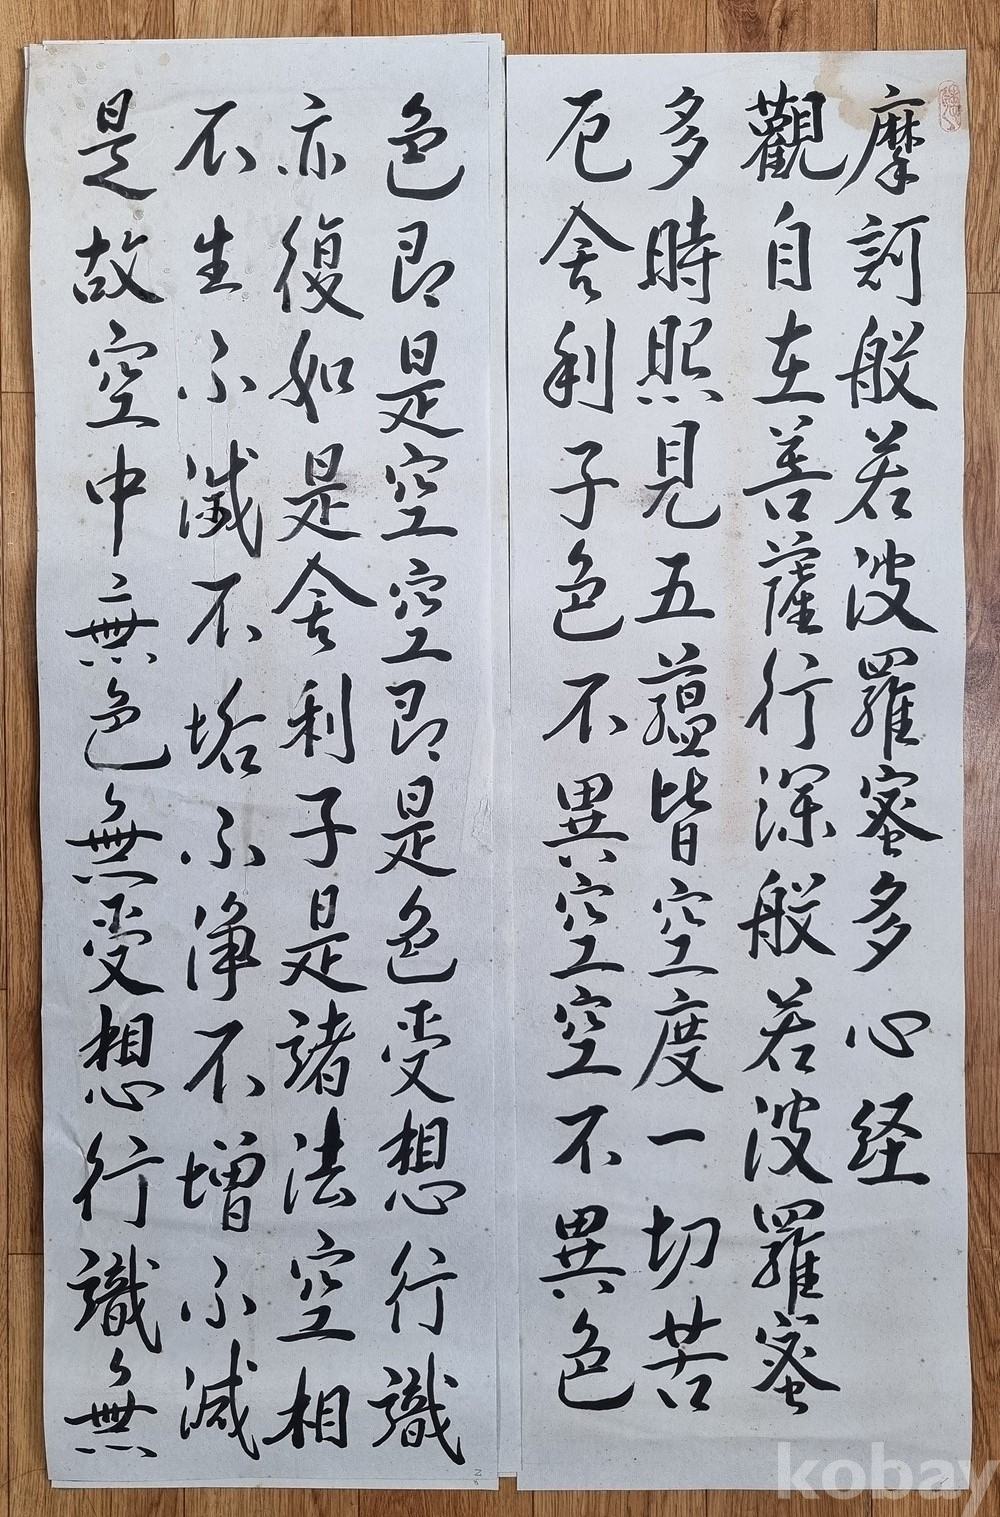 摩訶般若波羅蜜多心経
觀自在菩薩行深般若波羅蜜
多時照見五蘊皆空度一切苦
厄舍利子色不異空空不異色
色即是空空即是色受想行識
亦復如是舍利子是諸法空相
不生不滅不垢不淨不增不減
是故空中無色無受想行識無
kobay